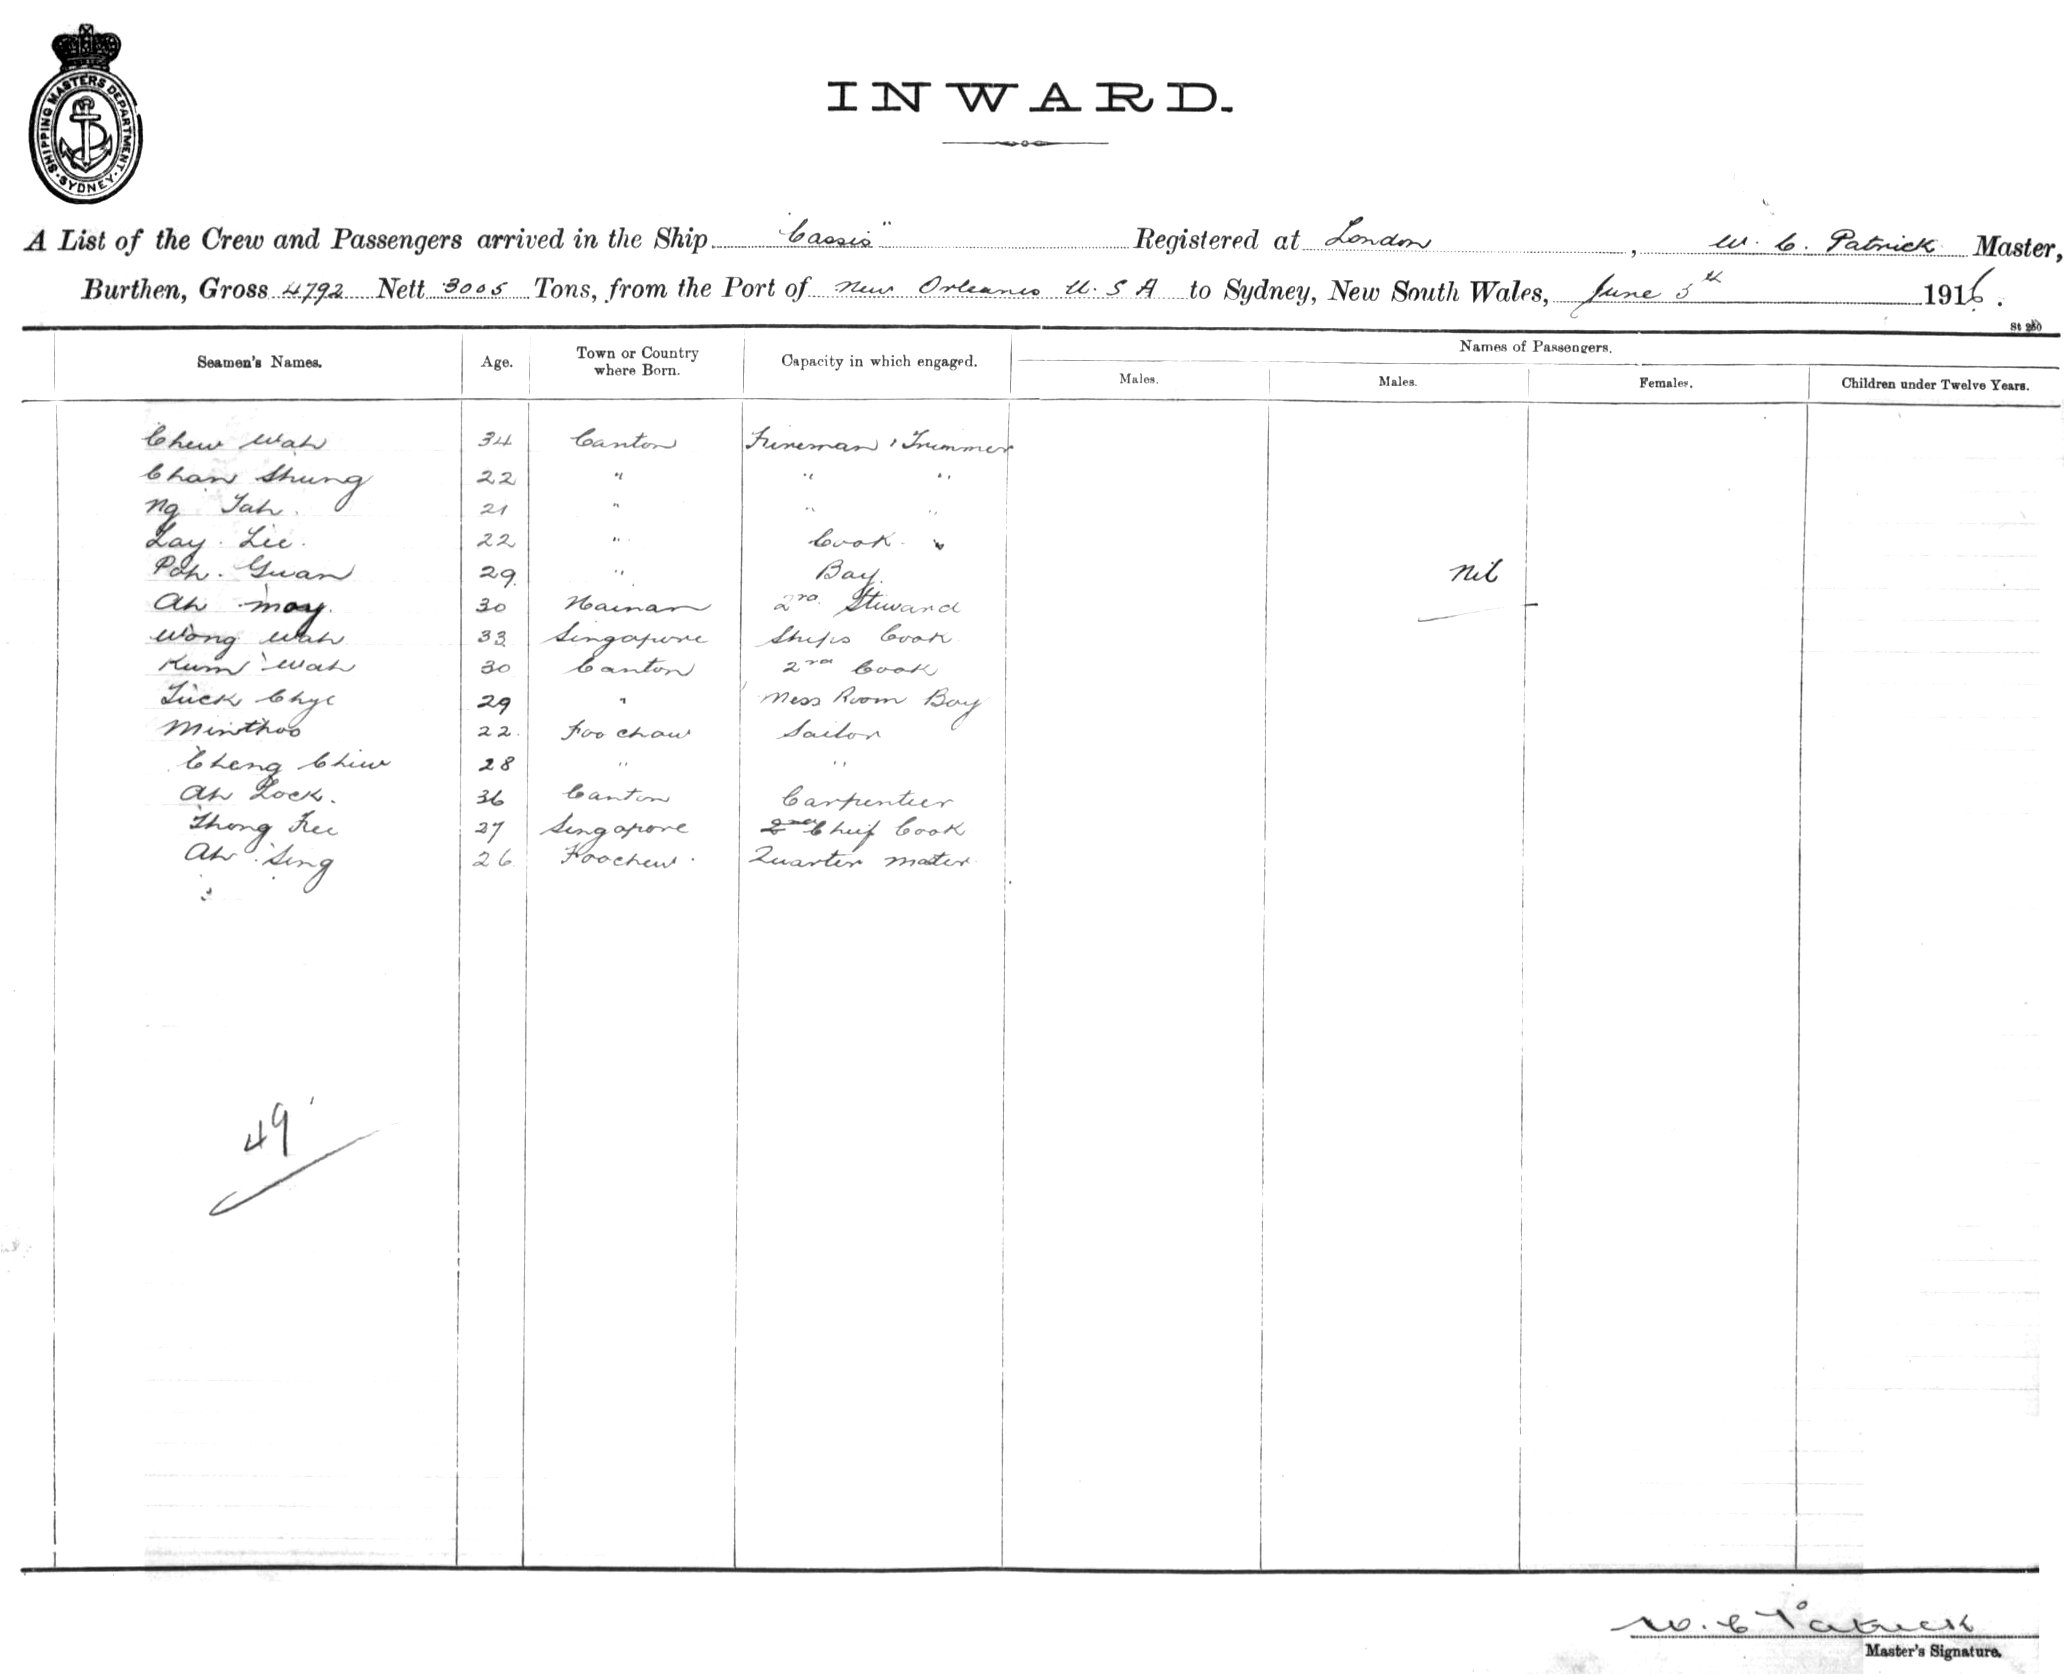 SHIPPING MASTERS DEPARTMENT · SYDNEY ·
INWARD.
A List of the Crew and Passengers arrived in the Ship "Cassis" Registered at London, W. C. Patrick Master,
Burthen, Gross 4792 Nett 3005 Tons, from the Port of New Orleans U.S A to Sydney, New South Wales, June 5th 1916.
St 280
Seamen's Names. Age. Town or Country where Born. Capacity in which engaged. Names of Passengers.
Males. Males. Females. Children under Twelve Years.
Chew Wah 34 Canton Fireman & Trimmer
Chan Shung 22 " " "
Ng Tah. 21 " " "
Lay. Lee. 22 " Cook
Poh. Guan 29. " Boy. Nil
Ah May. 30 Hainan 2nd Steward
Wong Wah 33 Singapore Ships Cook
Kum Wah 30 Canton 2nd Cook
Tuck Chye 29 " Mess Room Boy
Minthoo 22. Foo chow Sailor
Cheng Chiw 28 " "
Ah Lock. 36 Canton Carpentier
Thong Fee 27 Singapore Chief Cook
Ah Sing 26. Foochew. Quarter mater
49
W. C Patrick
Master's Signature.